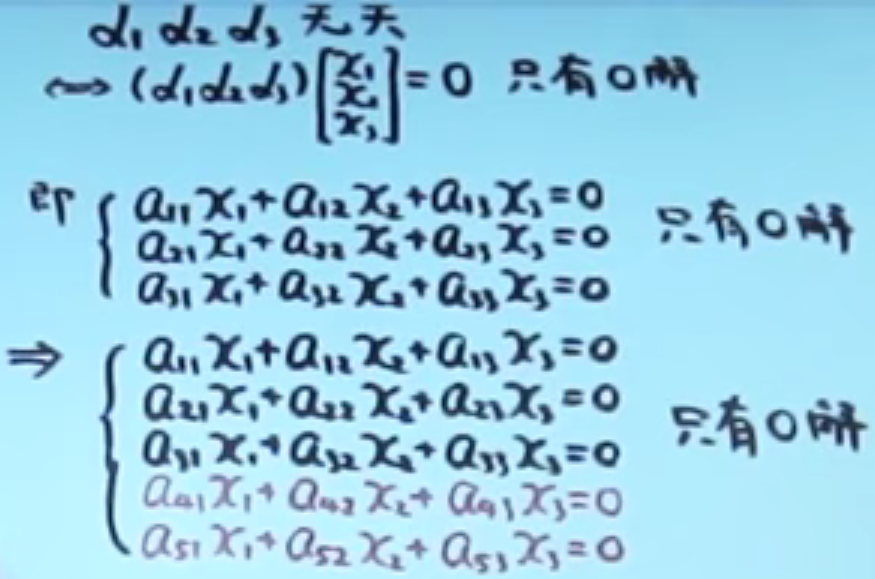 α₁ α₂ α₃ 无关
⟺ (α₁α₂α₃)[x₁ x₂ x₃] = 0 只有0解
即 { a₁₁x₁+a₁₂x₂+a₁₃x₃=0 只有0解
a₂₁x₁+a₂₂x₂+a₂₃x₃=0
a₃₁x₁+a₃₂x₂+a₃₃x₃=0
⇒ { a₁₁x₁+a₁₂x₂+a₁₃x₃=0
a₂₁x₁+a₂₂x₂+a₂₃x₃=0
a₃₁x₁+a₃₂x₂+a₃₃x₃=0 只有0解
a₄₁x₁+a₄₂x₂+a₄₃x₃=0
a₅₁x₁+a₅₂x₂+a₅₃x₃=0